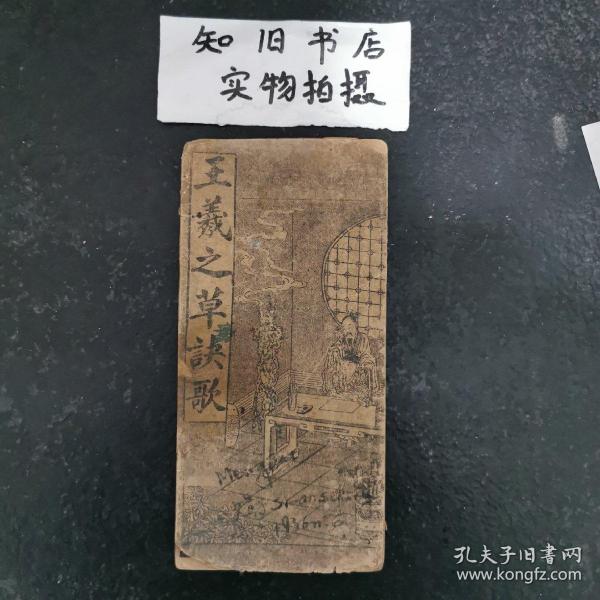 知旧书店
实物拍摄
王羲之草訣歌
孔夫子旧书网
www.kongfz.com